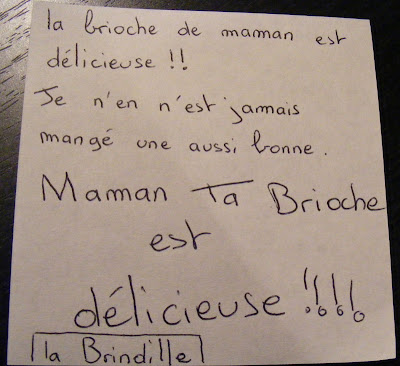 la brioche de maman est
délicieuse !!
Je n'en n'est jamais
mangé une aussi bonne.
Maman Ta Brioche
est
délicieuse !!!!
la Brindille